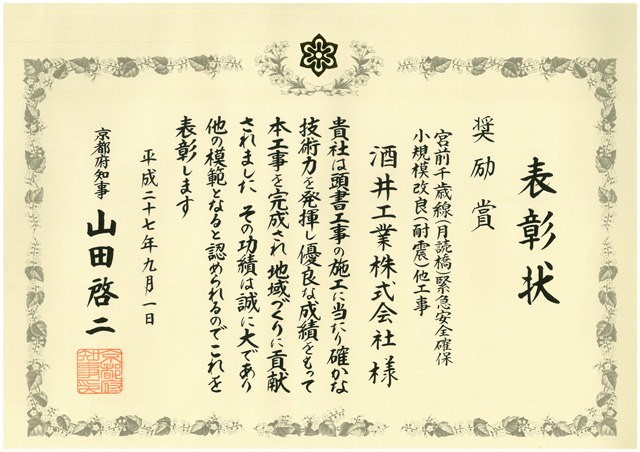 表彰状
奨励賞
宮前千歳線(月読橋)緊急安全確保
小規模改良(耐震)他工事
酒井工業株式会社様
貴社は頭書工事の施工に当たり確かな
技術力を発揮し優良な成績をもって
本工事を完成され地域づくりに貢献
されました その功績は誠に大であり
他の模範となると認められるのでこれを
表彰します
平成二十七年九月一日
京都府知事 山田啓二
京都府
知事之印